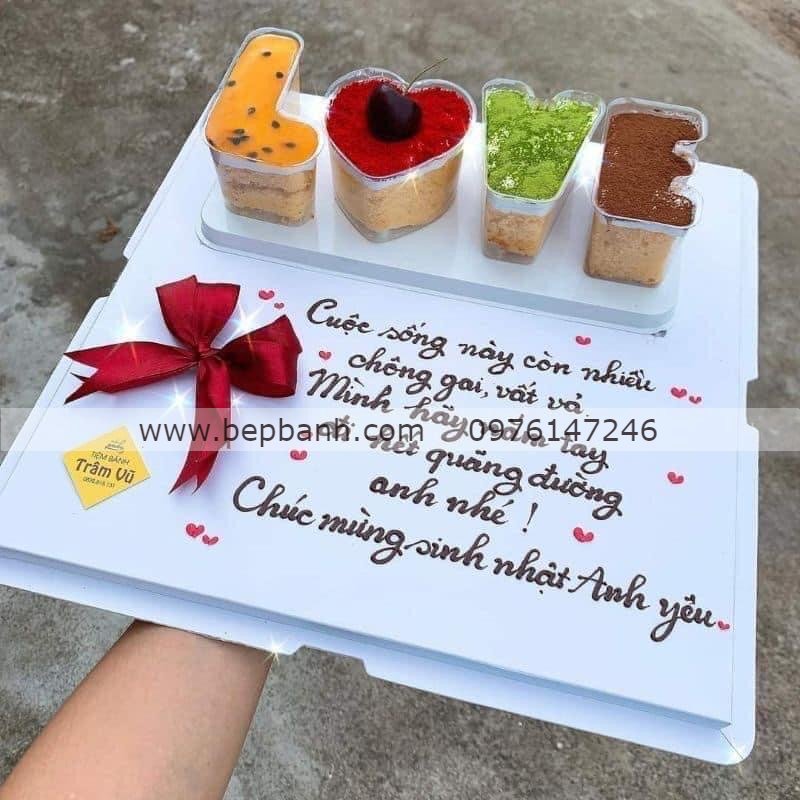 LOVE
Cuộc sống này còn nhiều
chông gai, vất vả
Mình hãy tay
www.bepbanh.com - 0976147246
hết quãng đường
anh nhé !
Chúc mừng sinh nhật Anh yêu
TIỆM BÁNH
Trâm Vũ